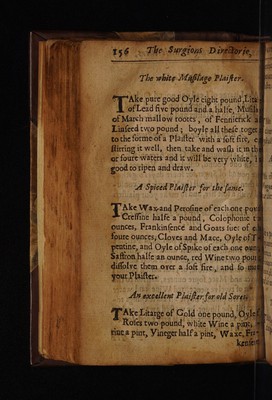 156 The Surgions Directorie,
The white Musilage Plaister.
TAke pure good Oyle eight pound, Lita
of Lead five pound and a halfe, Musila
of March mallow roots, of Fennicrick a
Linseed two pound; boyle all these toget
to the forme of a Plaister with a soft fire, e
stirring it well, then take and wash it in
or soure waters and it will be very white,
good to ripen and draw.
A Spiced Plaister for the same.
TAke Wax and Perosine of each one pou
Cressine halfe a pound, Colophonie t
ounces, Frankinsence and Goats suet of e
foure ounces, Cloves and Mace, Oyle of T
pentine, and Oyle of Spike of each one oun
Saffron halfe an ounce, red Wine two poun
dissolve them over a soft fire, and so m
your Plaister.
An excellent Plaister for old Sores.
TAke Litarge of Gold one pound, Oyle
Roses two pound, white Wine a pint,
rine a pint, Vineger halfe a pint, Waxe, Fra
kensen